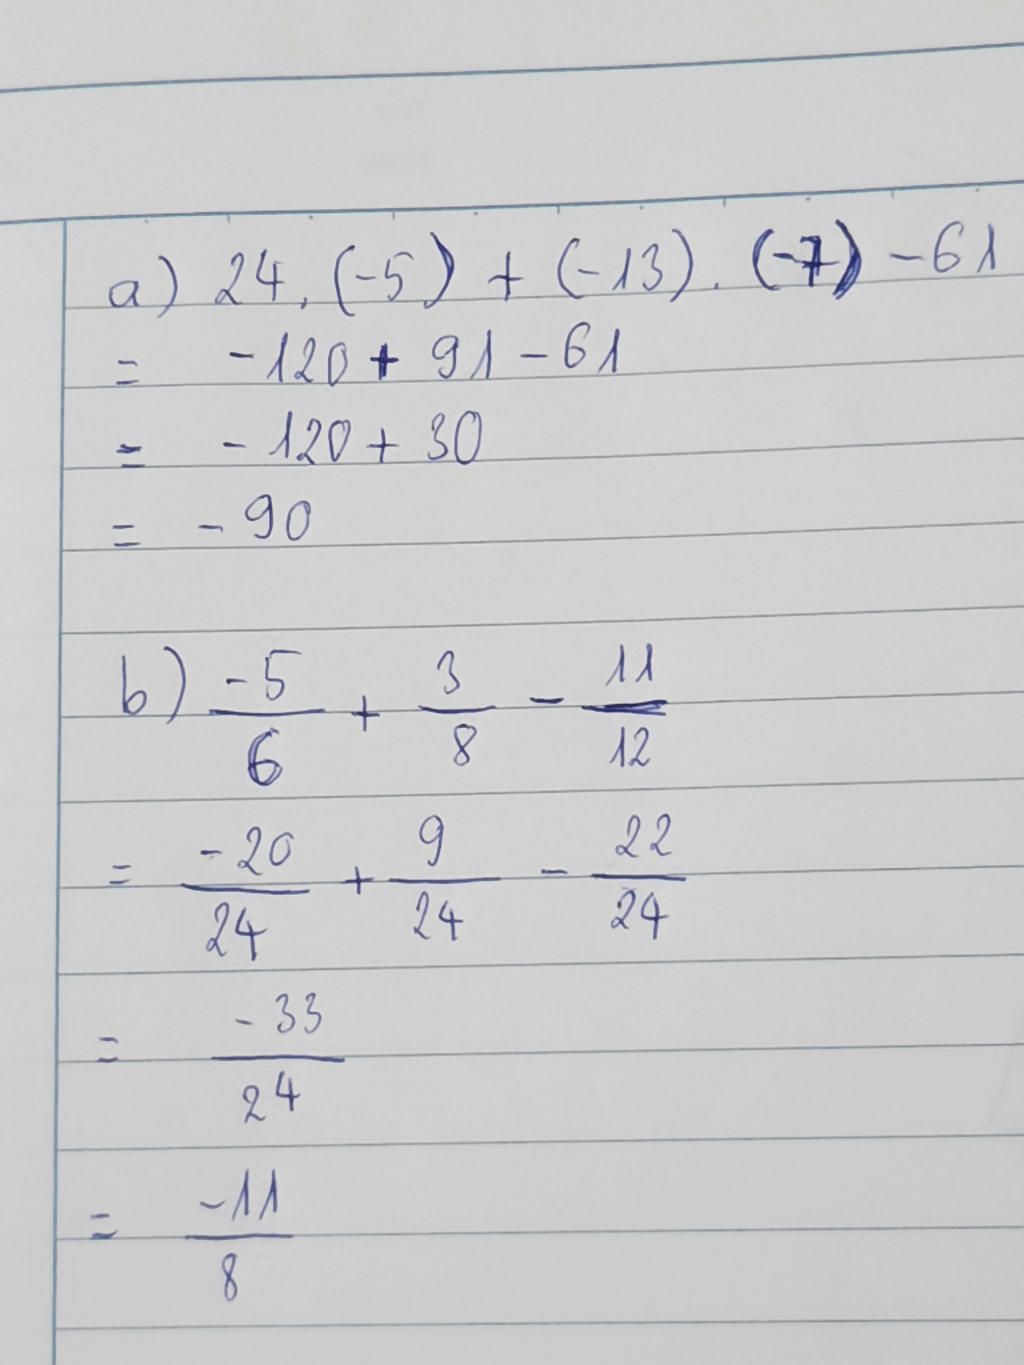 a) 24. (-5) + (-13). (-7) - 61
= -120 + 91 - 61
= -120 + 30
= -90
b) -5/6 + 3/8 - 11/12
= -20/24 + 9/24 - 22/24
= -33/24
= -11/8